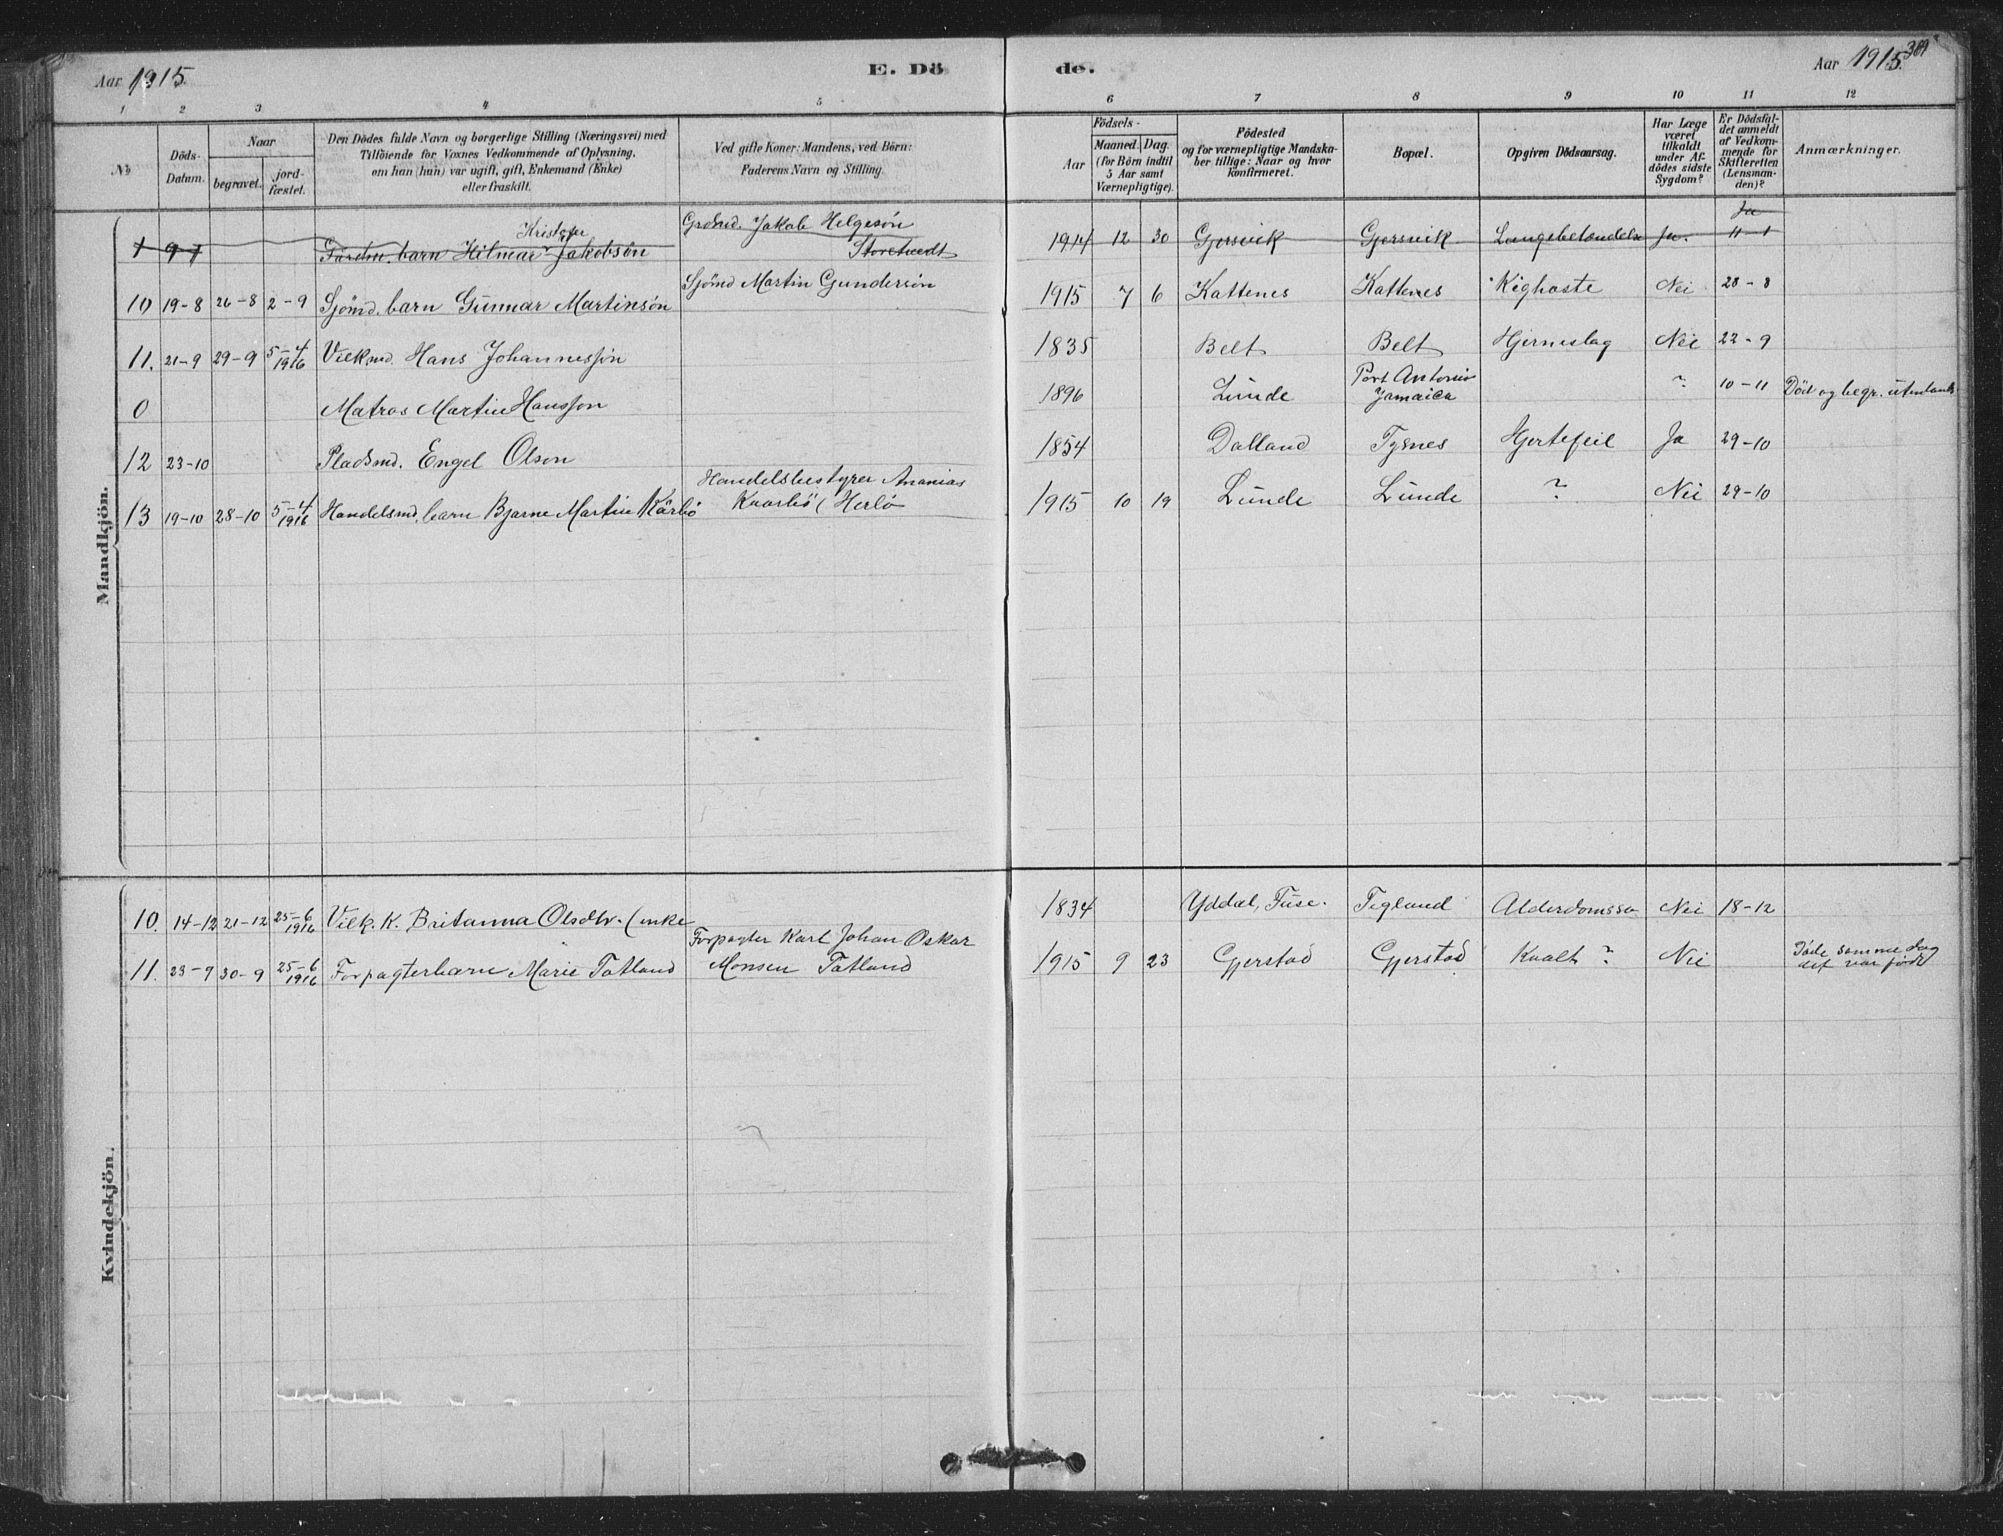 Aar 1915.
E. Dö
de.
Aar 1915.
389
1 2 3 4 5 6 7 8 9 10 11 12
No
Döds-Datum.
Naar
begravet.
jord-fæstet.
Den Dödes fulde Navn og borgerlige Stilling (Næringsvei) med
Tilföiende for Voxnes Vedkommende af Oplysning,
om han (hun) var ugift, gift, Enkemand (Enke)
eller fraskilt.
Ved gifte Koner: Mandens, ved Börn:
Faderens Navn og Stilling.
Födsels-
Aar
Maaned. Dag.
(for Börn indtil
5 Aar samt
Værnepligtige).
Födested
og for værnepligtige Mandska-
ber tillige: Naar og hvor
konfirmeret.
Bopæl.
Opgiven Dödsaarsag.
Har Læge
været
tilkaldt
under Af-
dödes sidste
Sygdom?
Er Dödsfal-
det anmeldt
af Vedkom-
mende for
Skifteretten
(Lensman-
den)?
Anmærkninger.
Mandkjön.
Kristofer
Grdmd. Jakob Helgesön
Ja
1 9-1 Gardm. barn Hilmar Jakobsön Storetvedt 1914 12 30 Gjersvik Gjersvik Lungebetændelse Ja. 11-1
Sjömd Martin Gundersön
10 19-8 26-8 2-9 Sjömd. barn Gunnar Martinsön 1915 7 6 Kattenes Kattenes Kighoste Nei 28-8
11. 21-9 29-9 5-4 1916 Vilkmd. Hans Johannessön 1835 Belt Belt Hjerneslag Nei 22-9
0 Matros Martin Hansson 1896 Lunde Port Antonio Jamaica ? 10-11 Död og begr. utenlands
12 23-10 Pladsmd. Engel Olson 1854 Dalland Tysnes Hjertefeil Ja 29-10
Handelsbestyrer Ananias
13 19-10 28-10 5-4 1916 Handelsmd. barn Bjarne Martin Kårbö Kvarbö (Herlö 1915 10 19 Lunde Lunde ? Nei 29-10
Kvindekjön.
10. 14-12 21-12 25-6 1916 Vilk. K. Britanna Olsdtr. (enke 1834 Yddal, Fuse. Tegland Alderdomssv Nei 18-12
Forpagter Karl Johan Oskar
11. 23-9 30-9 25-6 1916 Forpagterbarn Marie Tatland Monsen Tatland 1915 9 23 Gjerstad Gjerstad Kvalt ? Nei Döde samme dag
det var född